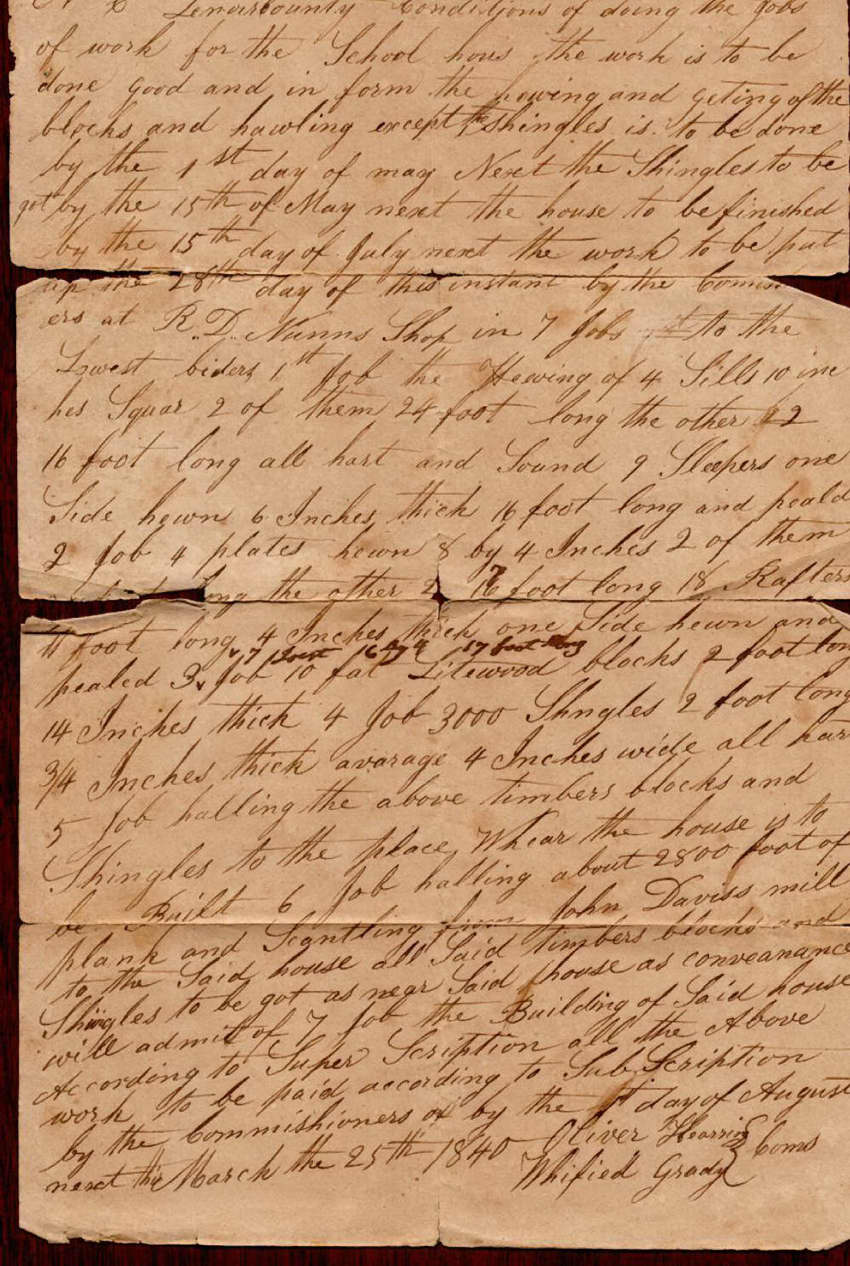 N C Lenoir County Conditions of doing the Jobs
of work for the School hous the work is to be
done good and in form the howing and geting of the
blocks and hawling except the shingles is to be done
by the 1st day of may Next the Shingles to be
got by the 15th of May next the house to be finished
by the 15th day of July next the work to be put
up the 28th day of this instant by the Comisi
ers at R. D. Nunns Shop in 7 Jobs to the
Lowest biders 1st Job the Hewing of 4 Sills 10 inc
hes Squar 2 of them 24 foot long the other 2
16 foot long all hart and Sound 9 Sleepers one
Side hewn 6 Inches thick 16 foot long and peald
2 Job 4 plates hewn 8 by 4 Inches 2 of them
long the other 2 17 foot long 18 Rafters
11 foot long 4 Inches thick one Side hewn and
7 Joist 16 17 foot long
pealed 3 Job 10 fat Litewood blocks 2 foot long
14 Inches thick 4 Job 3000 Shngles 2 foot long
3/4 Inches thick avarage 4 Inches wide all hart
5 Job halling the above timbers blocks and
Shingles to the place Whear the house is to
be Built 6 Job halling about 2800 foot of
plank and Scantling from John Daviss mill
to the Said house all Said timbers blocks and
Shingles to be got as near Said house as conveanance
will admit of 7 Job the Building of Said house
According to Super Scription all the Above
work to be paid according to Sub Scription
by the Commishioners or by the 1st day of August
next this March the 25th 1840 Oliver Hearring
Whified Grady } Coms